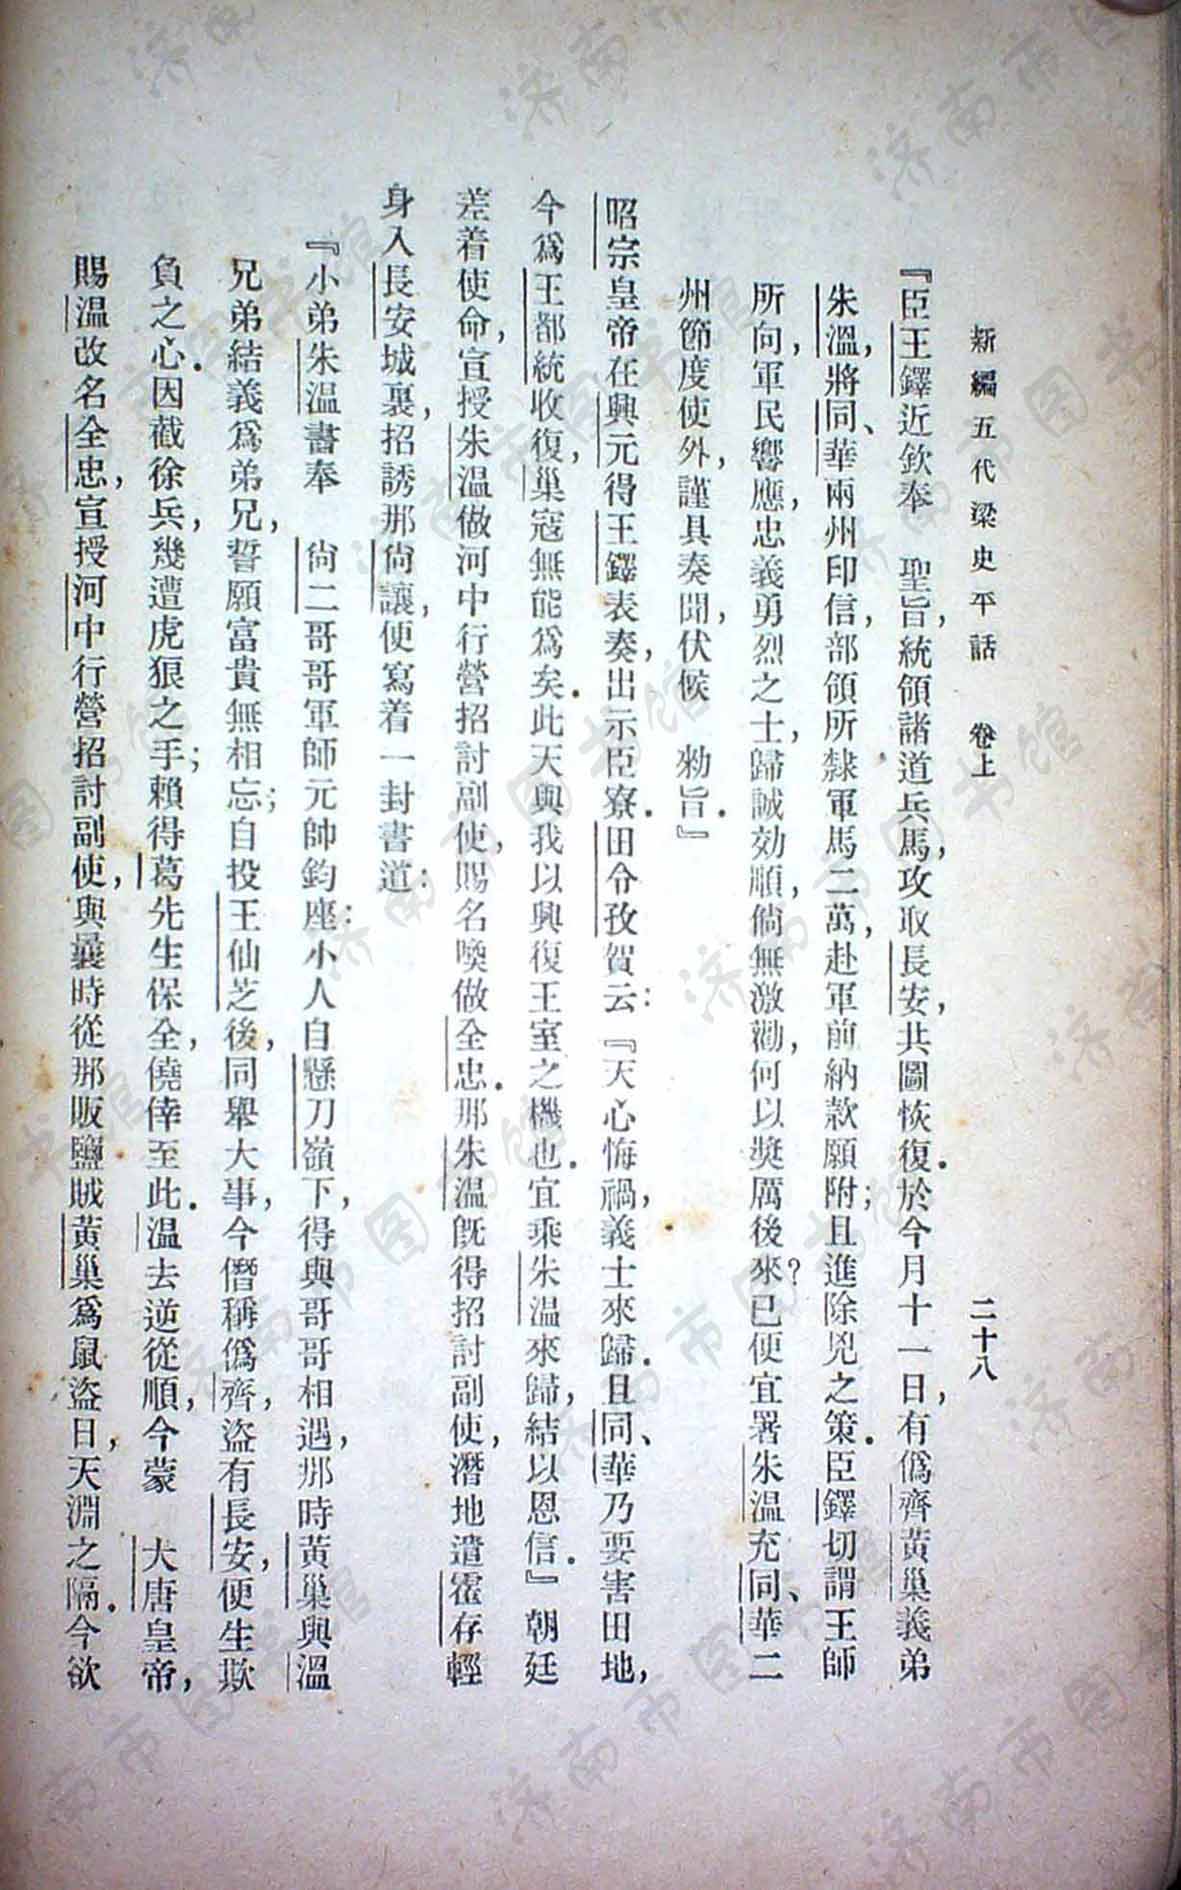 新編五代梁史平話　卷上　二十八
『臣王鐸近欽奉　聖旨，統領諸道兵馬，攻取長安，共圖恢復．於今月十一日，有僞齊黃巢義弟
朱溫，將同、華兩州印信，部領所隸軍馬二萬，赴軍前納款願附；且進除兇之策．臣鐸切謂王師
所向，軍民響應，忠義勇烈之士，歸誠効順，倘無激勸，何以獎厲後來？已便宜署朱溫充同、華二
州節度使外，謹具奏聞，伏候　勑旨．』
昭宗皇帝在興元得王鐸表奏，出示臣寮．田令孜賀云：『天心悔禍，義士來歸．且同、華乃要害田地，
今爲王都統收復，巢寇無能爲矣．此天與我以興復王室之機也．宜乘朱溫來歸，結以恩信．』朝廷
差着使命，宣授朱溫做河中行營招討副使，賜名喚做全忠．那朱溫旣得招討副使，潛地遣霍存輕
身入長安城裏，招誘那尙讓，便寫着一封書道：
『小弟朱溫書奉　尙二哥哥軍師元帥鈞座：小人自懸刀嶺下，得與哥哥相遇，那時黃巢與溫
兄弟結義爲弟兄，誓願富貴無相忘；自投王仙芝後，同舉大事，今僭稱僞齊，盜有長安，便生欺
負之心．因截徐兵，幾遭虎狼之手；賴得葛先生保全，僥倖至此．溫去逆從順，今蒙　大唐皇帝，
賜溫改名全忠，宣授河中行營招討副使，與曩時從那販鹽賊黃巢爲鼠盜日，天淵之隔．今欲
济南市图书馆